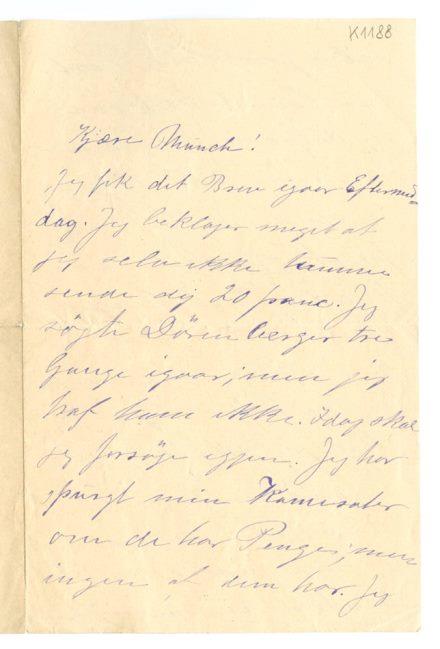 K1188
Kjære Munch!
Jeg fik det Brev igaar Eftermid-
dag. Jeg beklager meget at
jeg selv ikke kunne
sende dig 20 franc. Jeg
søgte Dörenberger tre
Gange igaar; men jeg
traf ham ikke. Idag skal
jeg forsøge igjen. Jeg har
spurgt min Kamerater
om de har Penge; men
ingen af dem har. Jeg